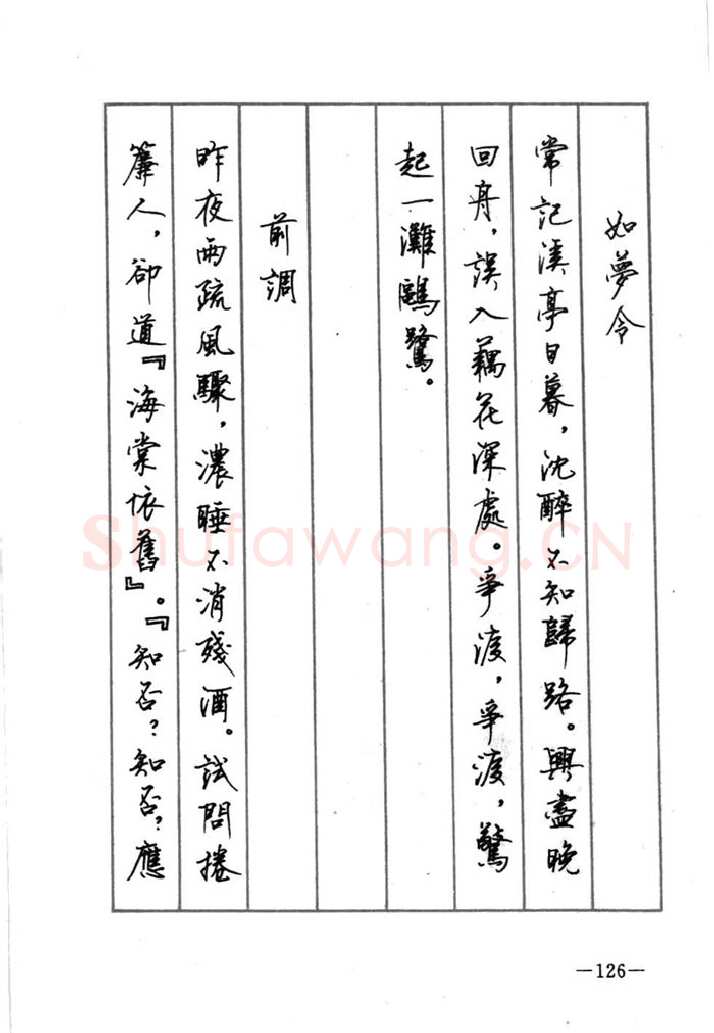 如夢令
常記溪亭日暮，沈醉不知歸路。興盡晚
回舟，誤入藕花深處。爭渡，爭渡，驚
起一灘鷗鷺。
前調
昨夜雨疏風驟，濃睡不消殘酒。試問捲
簾人，卻道『海棠依舊』。『知否？知否？應
—126—
Shufawang.CN